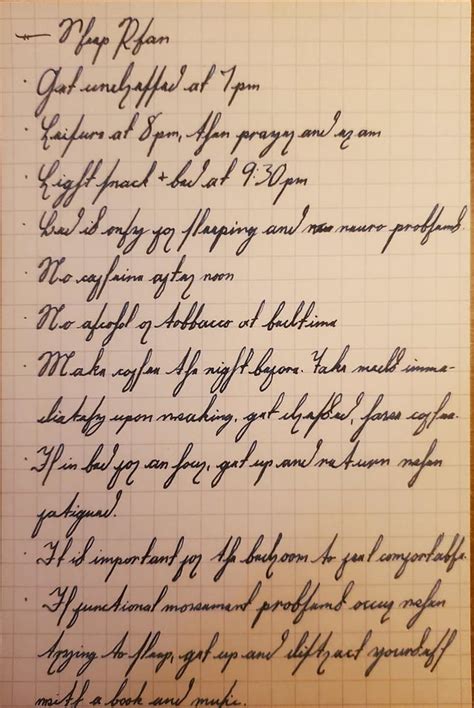 Sleep Plan
· Get undressed at 7pm
· Leisure at 8pm, then prayer and exam
· Light snack + bed at 9:30pm
· Bed is only for sleeping and neuro problems.
· No caffeine after noon
· No alcohol or tobbacco at bedtime
· Make coffee the night before. Take meds imme-
diately upon waking, get dressed, coffee.
· If in bed for an hour, get up and return when
fatigued.
· It is important for the bedroom to feel comfortable.
· If functional movement problems occur when
trying to sleep, get up and distract yourself
with a book and music.